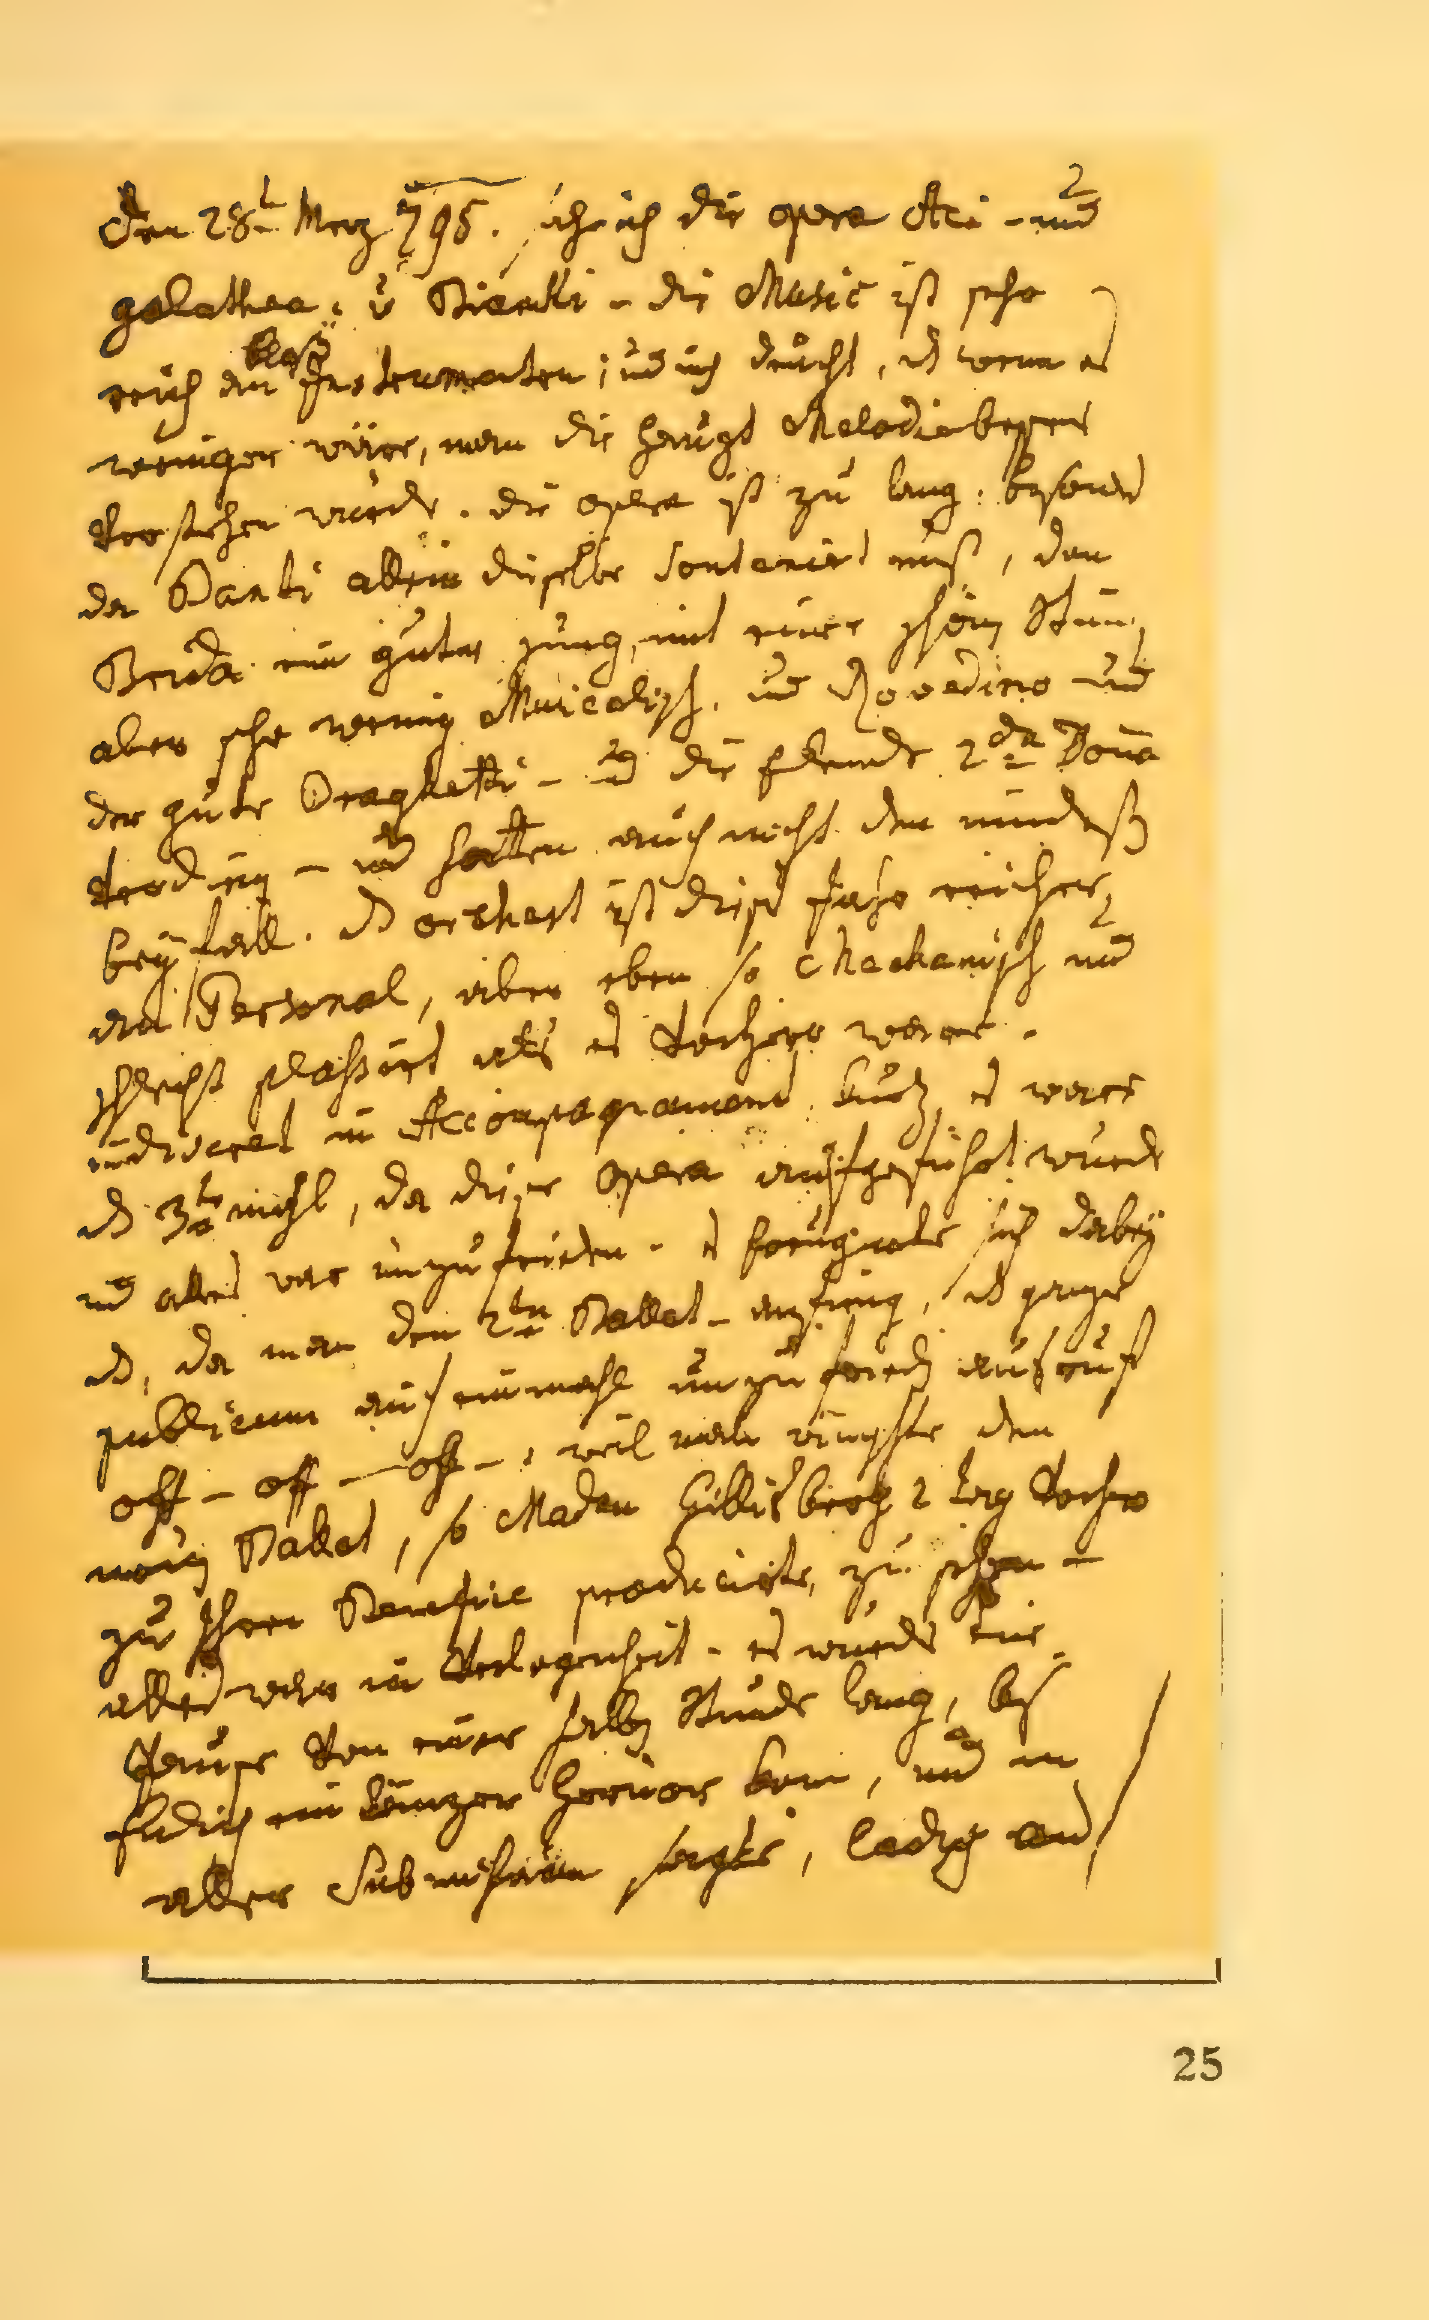 Den 28t Merz 795. sah ich die opera Aci und
galathea, v Bianchi – die Music ist sehr
reich an blas Instrumenten; und mich deucht, daß wenn es
weniger wäre, man die haupt Melodie besser
Verstehen würde. die opera ist zu lang, besonders
da Banti allein dieselbe souteniert muß, den
Brida ein guter jung, mit einer schönen Stim,
aber sehr wenig Musicalisch. und Rovedino und
der gute Braghetti – und die Elende 2da Dona
Verdienen – und hatten auch nicht den mindesten
beyfall. das orchest ist dieses Jahr reicher
an Personal, aber eben so Mechanisch und
schlecht plassirt als es Vorhero ware.
indiscret in Accompagnament. kurz, es ware
das 3te mahl, da diese Opera aufgeführt wurde
und alles war unzufrieden. es ereugnete sich dabey
das, da man den 2ten Ballet anfieng, das ganze
publicum auf einmahl unzufrieden ausruft
off – off – off – , weil man wünschte den
neuen Ballet, so Madam Hillisberg 2 tag Vorhero
zu Ihrer Benefice producirte, zu sehen –
alles war in Verlegenheit – es wurde eine
Pause Von einer halben Stunde lang, bis
Endlich ein Tänzer hervor kam, und in
aller Submission sagte, ladys and
25